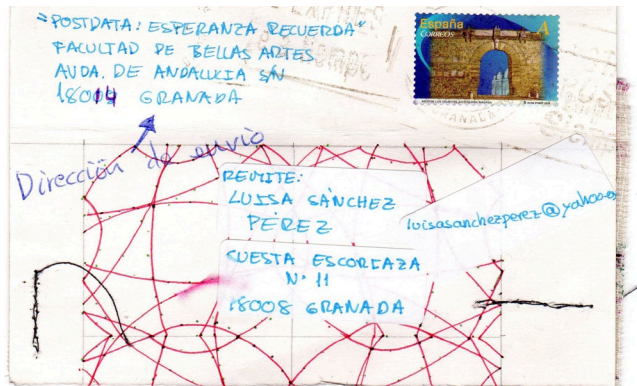 "POSTDATA: ESPERANZA RECUERDA"
FACULTAD DE BELLAS ARTES
AVDA. DE ANDALUCIA S/N
18014 GRANADA
España
CORREOS
A
Dirección de envío
REMITE:
LUISA SÁNCHEZ
PÉREZ
luisasanchezperez@yahoo.es
CUESTA ESCORIAZA
Nº 11
18008 GRANADA